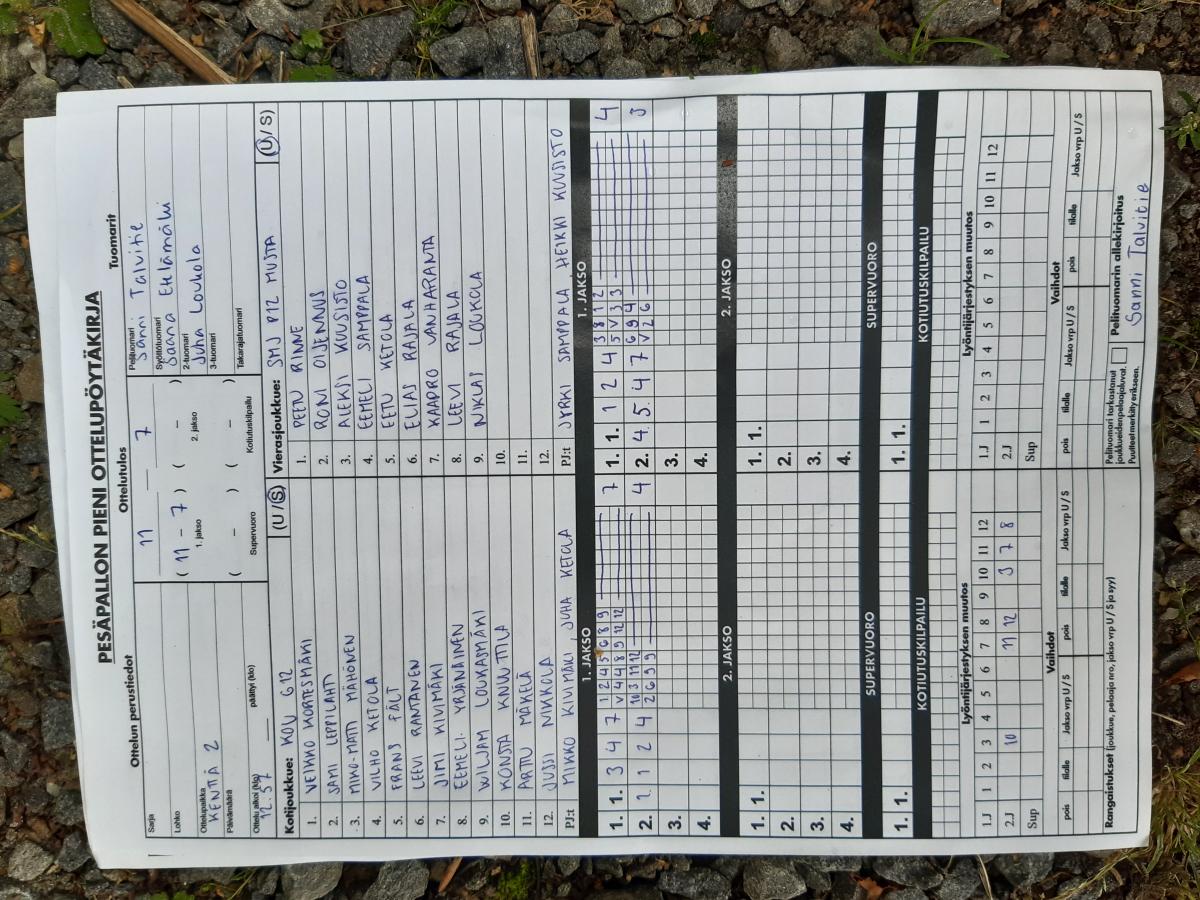 PESÄPALLON PIENI OTTELUPÖYTÄKIRJA
Ottelun perustiedot
Ottelutulos
Tuomarit
Sarja
Lohko
Ottelupaikka
KENTÄ 2
Päivämäärä
Ottelu alkoi (klo) päättyi (klo)
12.57
11 — 7
( 11 - 7 ) ( - )
1. jakso 2. jakso
( - ) ( - )
Supervuoro Kotiutuskilpailu
Pelituomari
Sanni Talvitie
Syöttötuomari
Saana Etelämäki
2-tuomari
Juha Loukola
3-tuomari
Takarajatuomari
Kotijoukkue: KOU G12 (U / S)
1. VEIKKO KORTESMÄKI
2. SAMI LEPPILAHTI
3. MIKO-MATI MÄHÖNEN
4. VILHO KETOLA
5. FRANS PÄLT
6. LEEVI RANTANEN
7. JIMI KIVIMÄKI
8. EEMELI YRJANAINEN
9. WILJAM LOUKASMÄKI
10. KONSTA KNUUTILA
11. ARTTU MÄKELÄ
12. JUSSI NIKKOLA
PJ:t MIKKO KIVIMÄKI, JUHA KETOLA
Vierasjoukkue: SMJ P12 MUSTA (U / S)
1. PEETU RINNE
2. RONI OIJENNUS
3. ALEKSI KUUSISTO
4. EEMELI SAMPPALA
5. EETU KETOLA
6. ELIAS RAJALA
7. KAAPO VANHARANTA
8. LEEVI RAJALA
9. NIKLAS LOUKOLA
10.
11.
12.
PJ:t JYRKI SAMPPALA HEIKKI KUUSISTO
1. JAKSO 1. JAKSO
1. 1. 3 4 7 1 2 4 5 6 8 9 7
V 4 4 8 9 12 12
2. 2 1 2 4 10 3 11 12 4
2 6 9 9
3.
4.
1. 1. 1 2 4 3 8 1 2 4
5 V 3 3
2. 4 5 4 7 6 9 4 3
V 2 6
3.
4.
2. JAKSO 2. JAKSO
1. 1.
2.
3.
4.
1. 1.
2.
3.
4.
SUPERVUORO SUPERVUORO
1. 1.
1. 1.
KOTIUTUSKILPAILU KOTIUTUSKILPAILU
Lyöntijärjestyksen muutos
1.J 1 2 3 4 5 6 7 8 9 10 11 12
2.J 10 11 12 3 7 8
Sup
Lyöntijärjestyksen muutos
1.J 1 2 3 4 5 6 7 8 9 10 11 12
2.J
Sup
Vaihdot
pois tilalle Jakso vrp U / S pois tilalle Jakso vrp U / S
Vaihdot
pois tilalle Jakso vrp U / S pois tilalle Jakso vrp U / S
Rangaistukset (joukkue, pelaaja nro, jakso vrp U / S ja syy)
Pelituomari tarkastanut
joukkueiden pelaajaluvat.
Puutteet merkitty erikseen.
Pelituomarin allekirjoitus
Sanni Talvitie